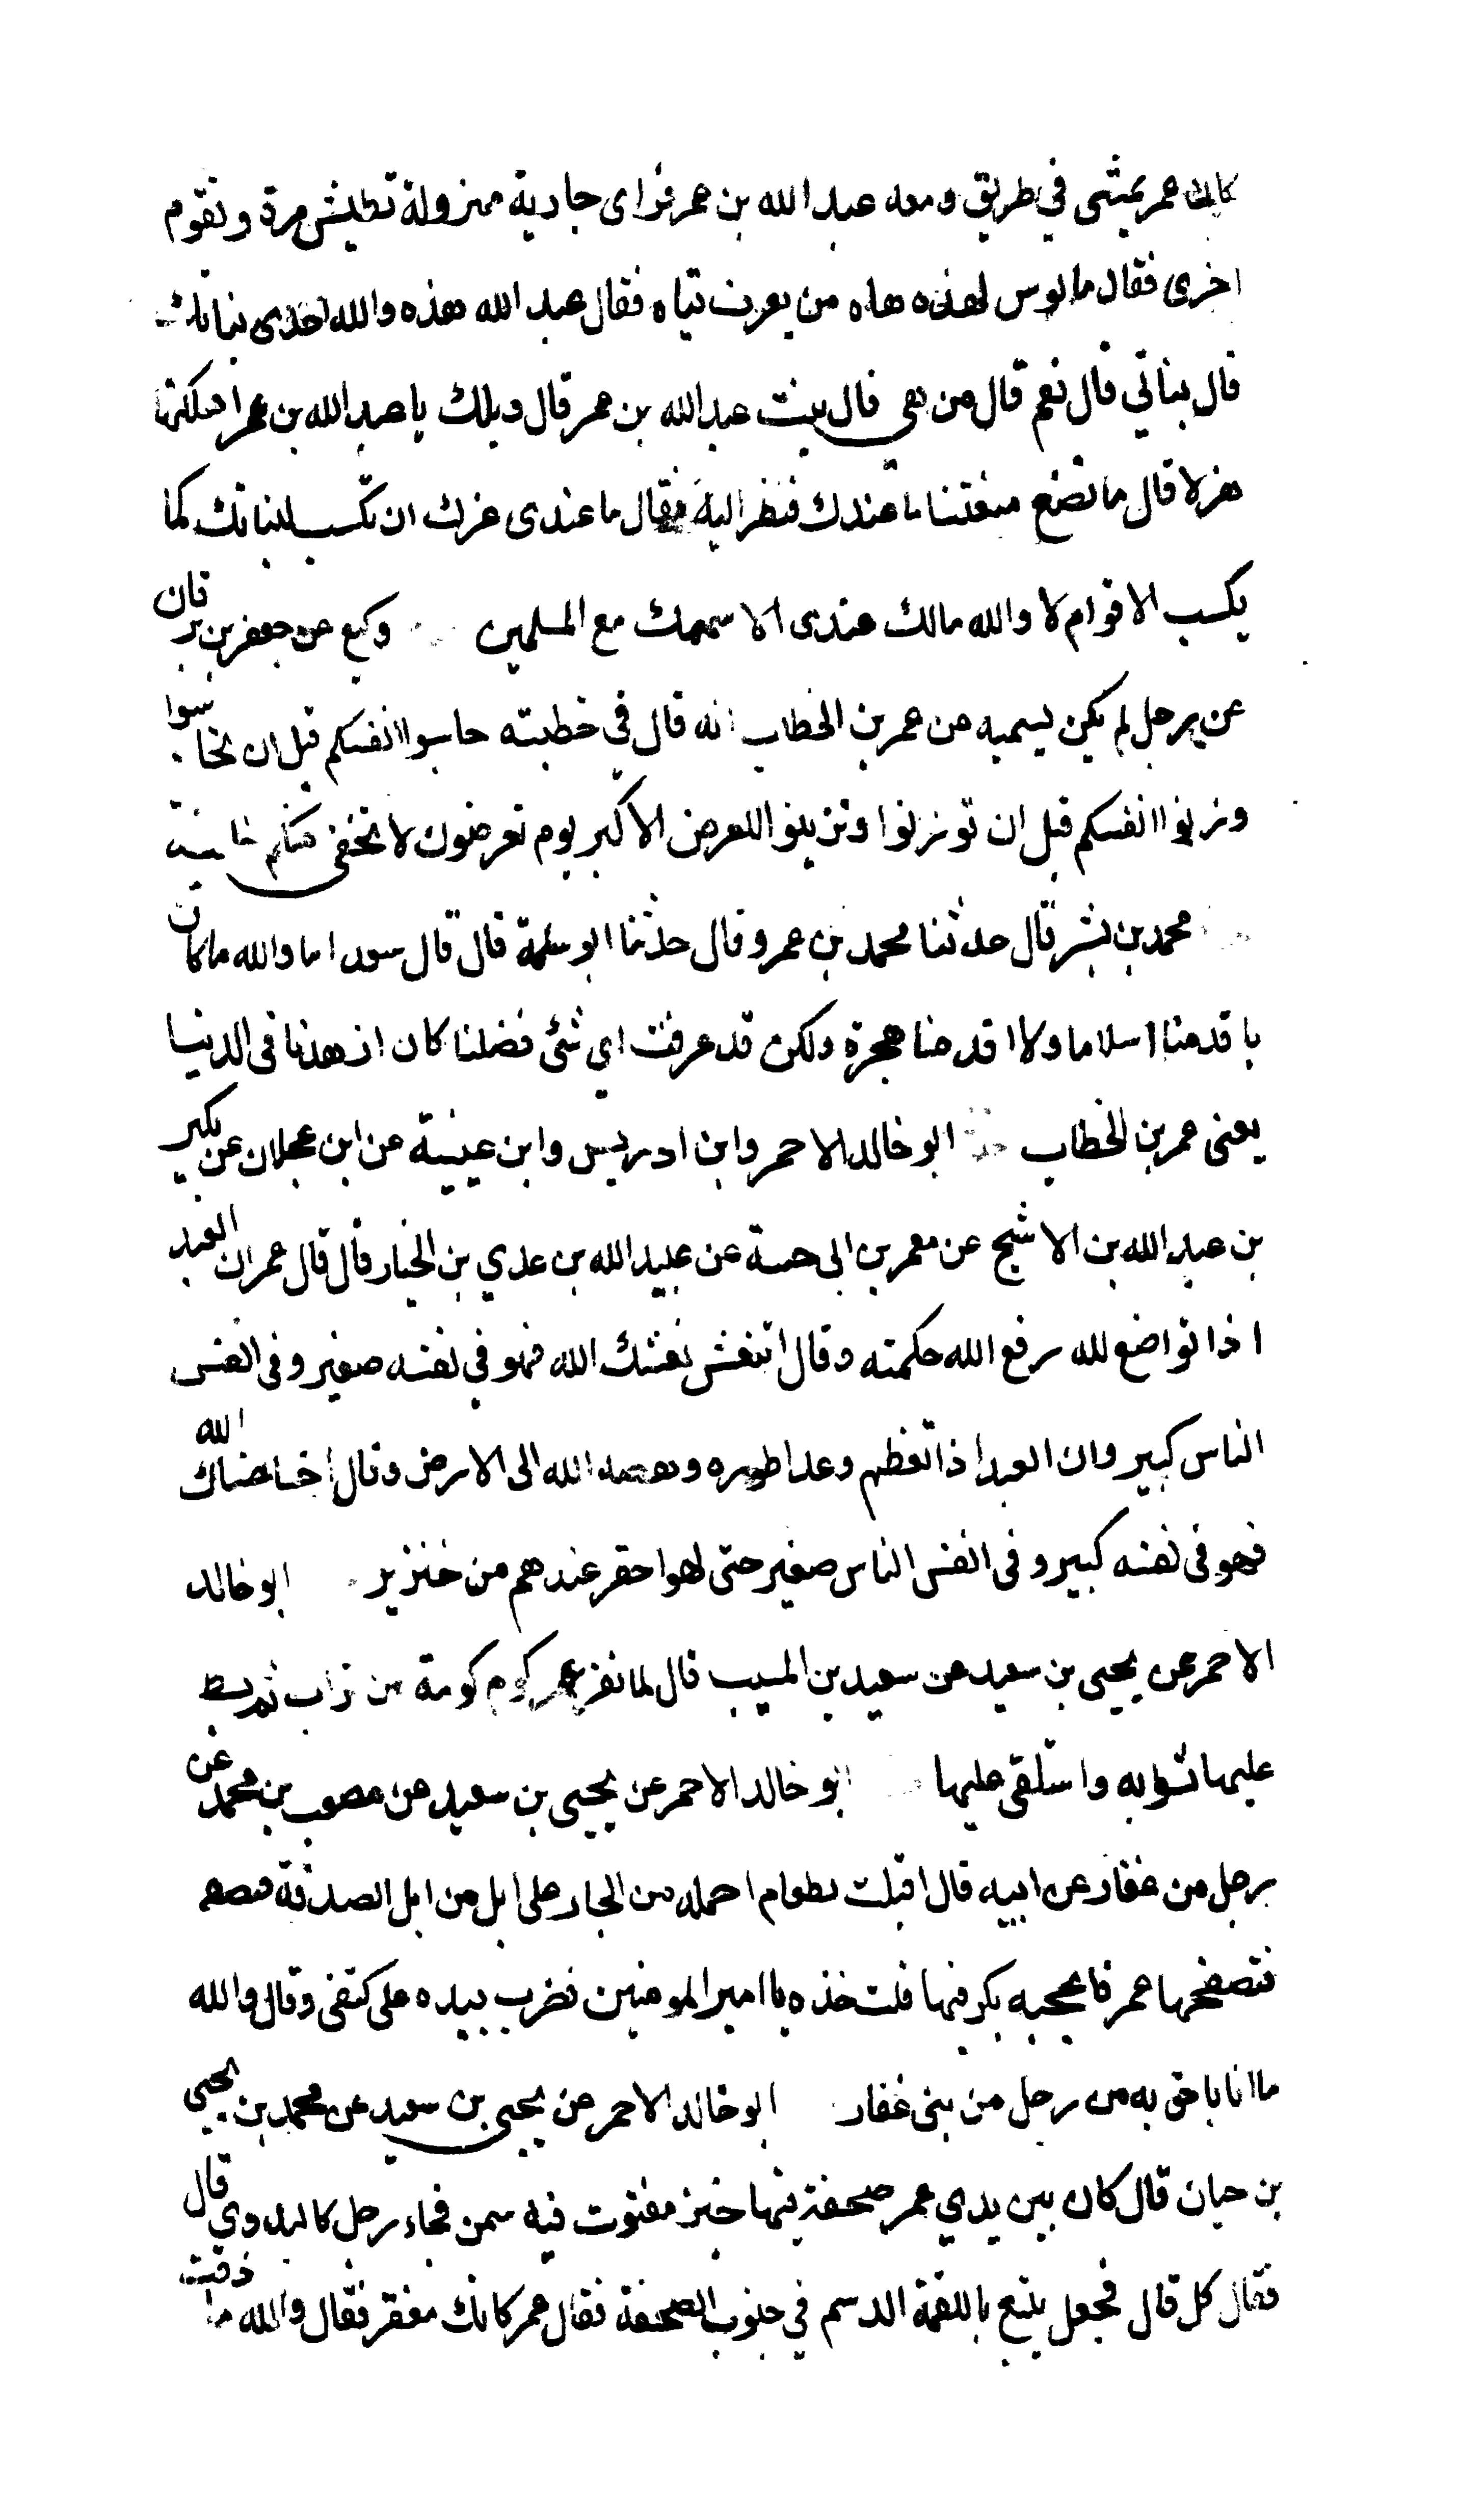 كان عمر يمشي في طريق ومعه عبد الله بن عمر فراى جارية مهزولة تطيش مرة وتقوم
اخرى فقال ما بوس لهذه هاه من يعرف تياه فقال عبد الله هذه والله احدى بناتك
قال بناتي قال نعم قال من هي قال بنت عبد الله بن عمر قال ويلك يا عبد الله بن عمر اهلكتها
هزلا قال ما نصنع منعتنا ما عندك فنظر اليه فقال ما عندى عزك ان تكسب لبناتك كما
يكسب الاقوام لا والله مالك عندى الا سهمك مع المسلمين وكيع عن جعفر بن برقان
عن رجل لم يكن يسميه عن عمر بن الخطاب انه قال في خطبته حاسبوا انفسكم قبل ان تحاسبوا
وزنوا انفسكم قبل ان توزنوا وتزينوا للعرض الاكبر يوم تعرضون لا تخفى منكم خافية
محمد بن بشر قال حدثنا محمد بن عمرو قال حدثنا ابو سلمة قال قال سعد اما والله ما كان
باقدمنا اسلاما ولا اقدمنا هجرة ولكن قد عرفت اي شئ فضلنا كان ازهدنا فى الدنيا
يعنى عمر بن الخطاب ابو خالد الاحمر وابن ادريس وابن عيينة عن ابن عجلان عن بكير
بن عبد الله بن الاشج عن معمر بن ابى حيية عن عبيد الله بن عدي بن الخيار قال قال عمر ان العبد
اذا تواضع لله رفع الله حكمته وقال انتعش نعشك الله فهو في نفسه صغير وفى انفس
الناس كبير وان العبد اذا تعظم وعدا طوره وهصه الله الى الارض وقال اخسا اخساك الله
فهو فى نفسه كبير وفى انفس الناس صغير حتى لهو احقر عندهم من خنزير ابو خالد
الاحمر عن يحيى بن سعيد عن سعيد بن المسيب قال لما نفر عمر كوم كومة من تراب ثم بسط
عليها ثوبه واستلقى عليها ابو خالد الاحمر عن يحيى بن سعيد عن مصعب بن محمد عن
رجل من غفار عن ابيه قال اقبلت بطعام احمله من الجار على ابل من ابل الصدقة
فتصفحها عمر فاعجبه بكر فيها قلت خذه يا امير المومنين فضرب بيده على كتفى وقال والله
ما انا باحق به من رجل من بنى غفار ابو خالد الاحمر عن يحيى بن سعيد عن محمد بن يحيى
بن حبان قال كان بين يدي عمر صحفة فيها خبز مفتوت فيه سمن فجاء رجل كالبدوي قال
فقال كل قال فجعل يتبع باللقمة الدسم في جنوب الصحفة فقال عمر كانك مقفر فقال والله ما ذقت